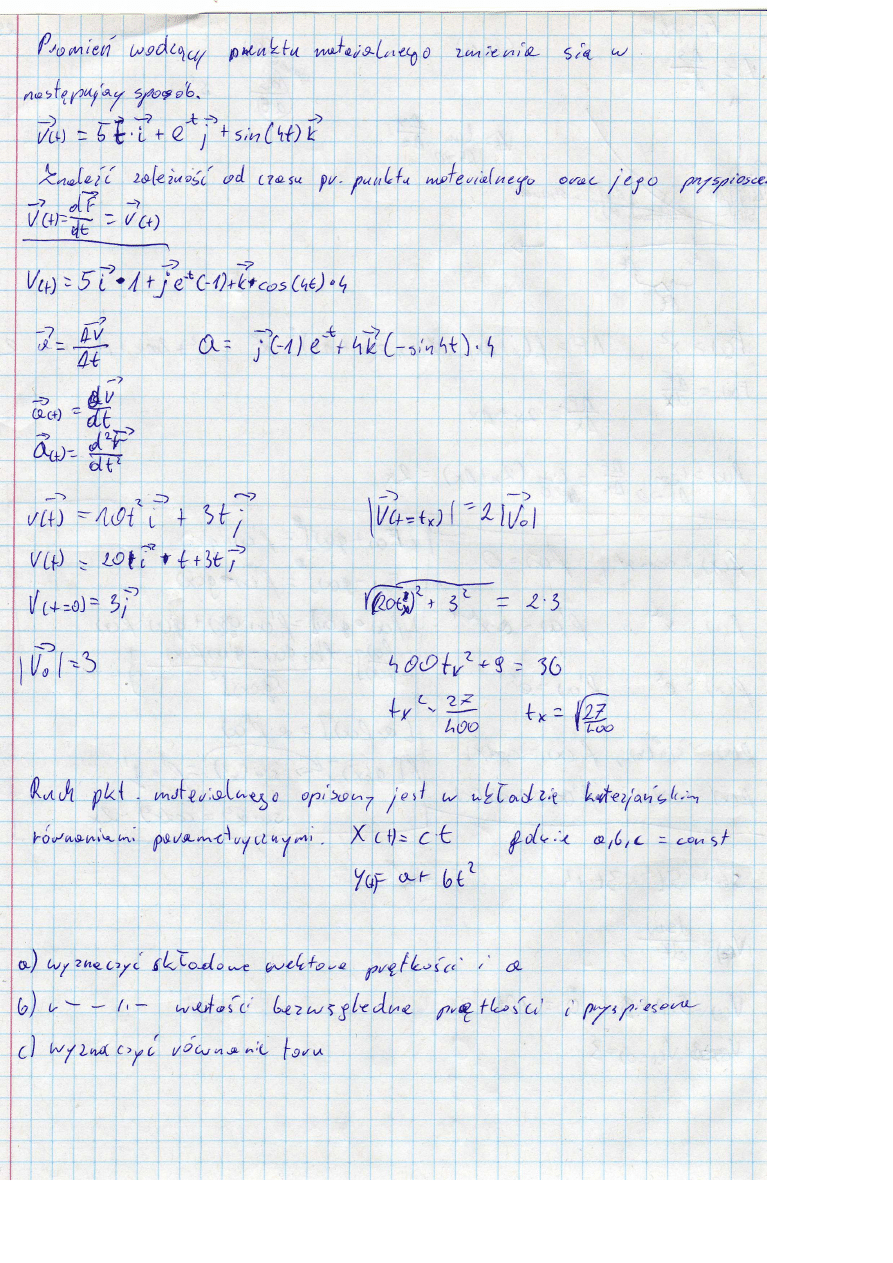 Promień wodzący punktu materialnego zmienia się w
następujący sposób.
v⃗(t) = 5t·i⃗ + e^-t j⃗ + sin(4t)k⃗
Znaleźć zależność od czasu pr. punktu materialnego oraz jego
V⃗(t) = dr⃗/dt = v⃗(t)
V(t) = 5i⃗·1 + j⃗ e^-t (-1) + k⃗·cos(4t)·4
a⃗ = Δv⃗/Δt a = j⃗(-1) e^-t + 4k⃗(-sin4t)·4
a⃗(t) = dv⃗/dt
a⃗(t) = d²r⃗/dt²
v(t)⃗ = 10t² i⃗ + 3t j⃗ |V⃗(t=tx)| = 2|V⃗o|
V(t) = 20 i⃗ · t + 3t j⃗
V(t=0) = 3j⃗ √(20tx)² + 3² = 2·3
|V⃗o| = 3 400tx² + 9 = 36
tx² = 27/400 tx = √27/400
Ruch pkt. materialnego opisany jest w układzie kartezjańskim
równaniami parametrycznymi. X(t) = ct gdzie a,b,c = const
y(t) = a + bt²
a) wyznaczyć składowe wektora prętkości i a
b) v – – /, – wartości bezwzględne prętkości i pryspiesone
c) wyznaczyć równanie toru